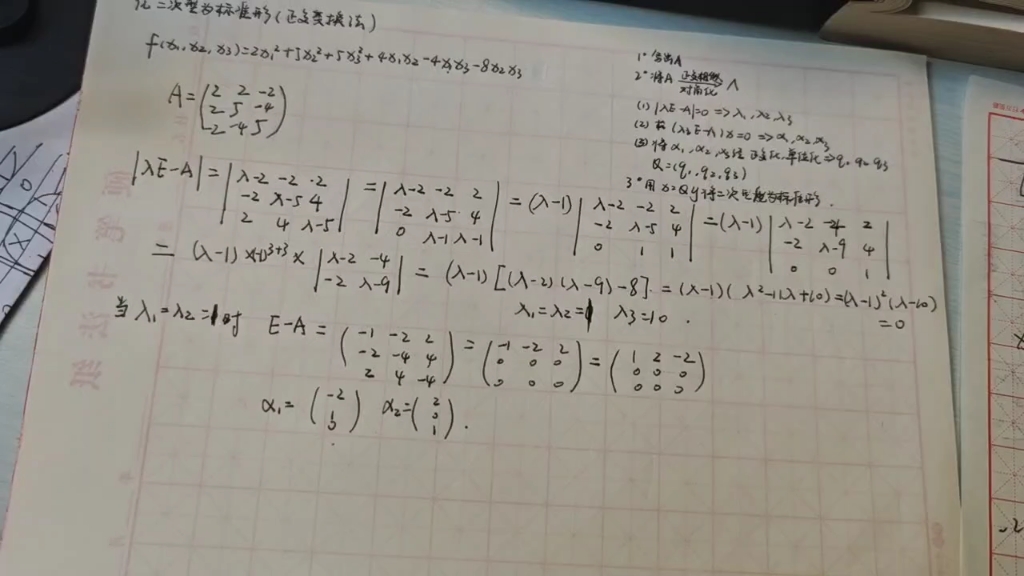 化二次型为标准形(正交变换法)
f(x₁,x₂,x₃)=2x₁²+5x₂²+5x₃²+4x₁x₂-4x₁x₃-8x₂x₃
A=(2 2 -2
2 5 -4
-2 -4 5)
1° 写出A
2° 将A 正交相似对角化 Λ
(1) |λE-A|=0 ⇒ λ₁,λ₂,λ₃
(2) 求(λᵢE-A)x=0 ⇒ α₁,α₂,α₃
(3) 将α₁,α₂, 正交化,单位化⇒q₁ q₂ q₃
Q=(q₁,q₂,q₃)
3° 用x=Qy将二次型化为标准形.
|λE-A|=|λ-2 -2 2
-2 λ-5 4
2 4 λ-5|
=|λ-2 -2 2
-2 λ-5 4
0 λ-1 λ-1|
=(λ-1)|λ-2 -2 2
-2 λ-5 4
0 1 1|
=(λ-1)|λ-2 -4 2
-2 λ-9 4
0 0 1|
=(λ-1)×(-1)³⁺³×|λ-2 -4
-2 λ-9|
=(λ-1)[(λ-2)(λ-9)-8]=(λ-1)(λ²-11λ+10)=(λ-1)²(λ-10)
=0
λ₁=λ₂=1 λ₃=10.
当λ₁=λ₂=1时 E-A=(-1 -2 2
-2 -4 4
2 4 -4)
=(-1 -2 2
0 0 0
0 0 0)
=(1 2 -2
0 0 0
0 0 0)
α₁=(-2
1
0)
α₂=(2
0
1).